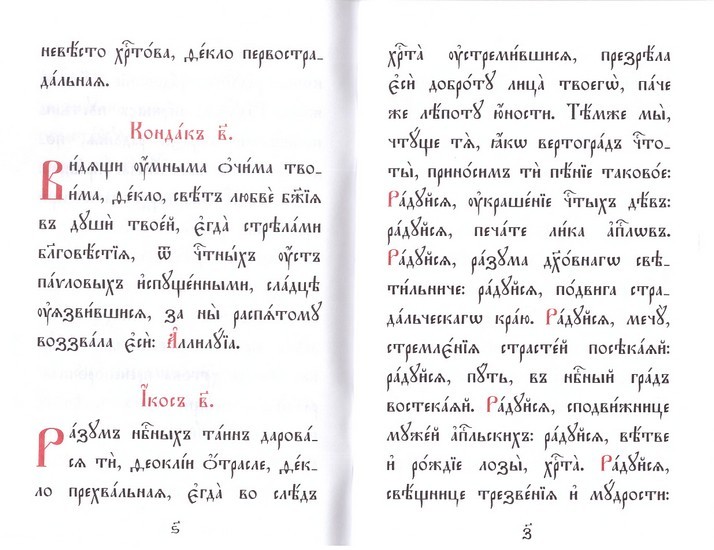 невѣ́сто хрⷭ҇то́ва, де́кло первостра-
да́льная.
Конда́къ в҃.
Ви́дящи ᲂу҆́мныма ѻ҆чи́ма тво-
и́ма, де́кло, свѣ́тъ любвѐ бж҃їѧ
въ дꙋшѝ твое́й, є҆гда̀ стрѣла́ми
бл҃говѣ́стїѧ, ѿ чтⷭ҇ны́хъ ᲂу҆́стъ
па́ѵловыхъ и҆спꙋще́нными, сла́дцѣ
ᲂу҆ѧзви́вшисѧ, за ны̀ распѧ́томꙋ
воззва́ла є҆сѝ: А҆ллилꙋ́їа.
І҆́косъ в҃.
Ра́зꙋмъ нбⷭ҇ныхъ та́инъ дарова́-
сѧ тѝ, деоклі́и ѻ҆́трасле, де́к-
ло прехва́льная, є҆гда̀ во слѣ́дъ
ѕ҃
хрⷭ҇та̀ ᲂу҆стреми́вшисѧ, презрѣ́ла
є҆сѝ добро́тꙋ лица̀ твоегѡ̀, па́че
же лѣ́потꙋ ю҆́ности. Тѣ́мже мы̀,
чтꙋ́ще тѧ̀, ꙗ҆́кѡ вертогра́дъ чⷭ҇то-
ты̀, прино́симъ тѝ пѣ́нїе таково́е:
Ра́дꙋйсѧ, ᲂу҆краше́нїе чⷭ҇тыхъ дѣ́въ:
ра́дꙋйсѧ, печа́те ли́ка а҆пⷭ҇лѡвъ.
Ра́дꙋйсѧ, ра́зꙋма дх҃о́внагѡ свѣ-
ти́льниче: ра́дꙋйсѧ, по́двига стра-
да́льческагѡ кра́ю. Ра́дꙋйсѧ, мечꙋ̀,
стремле́нїѧ страсте́й посѣка́ѧй:
ра́дꙋйсѧ, пꙋ́ть, въ нбⷭ҇ный гра́дъ
востека́ѧй. Ра́дꙋйсѧ, сподви́жнице
мꙋже́й а҆пⷭ҇льскихъ: ра́дꙋйсѧ, вѣ́тве
и҆ ро́ждїе лозы̀, хрⷭ҇та̀. Ра́дꙋйсѧ,
свѣ́щнице трезве́нїѧ и҆ мꙋ́дрости:
з҃